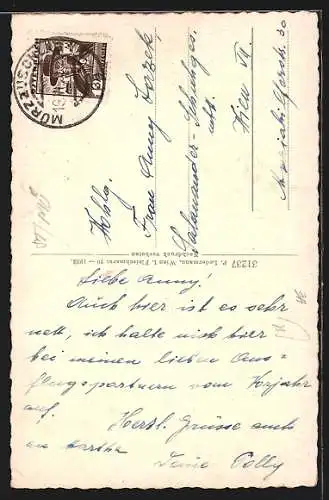 MÜRZZUSCHLAG
Wohlg.
Frau Anny
Salamander-Schuhges.
Wien VI.
Mariahilferstr.
31237 P. Ledermann, Wien I, Fleischmarkt 20 — 1935.
Nachdruck verboten
Liebe Anny!
Auch hier ist es sehr
nett, ich halte mich hier
bei meinen lieben Aus-
flugspartnern vom Vorjahr
auf. Herzl. Grüsse auch
an Martha
Deine Polly